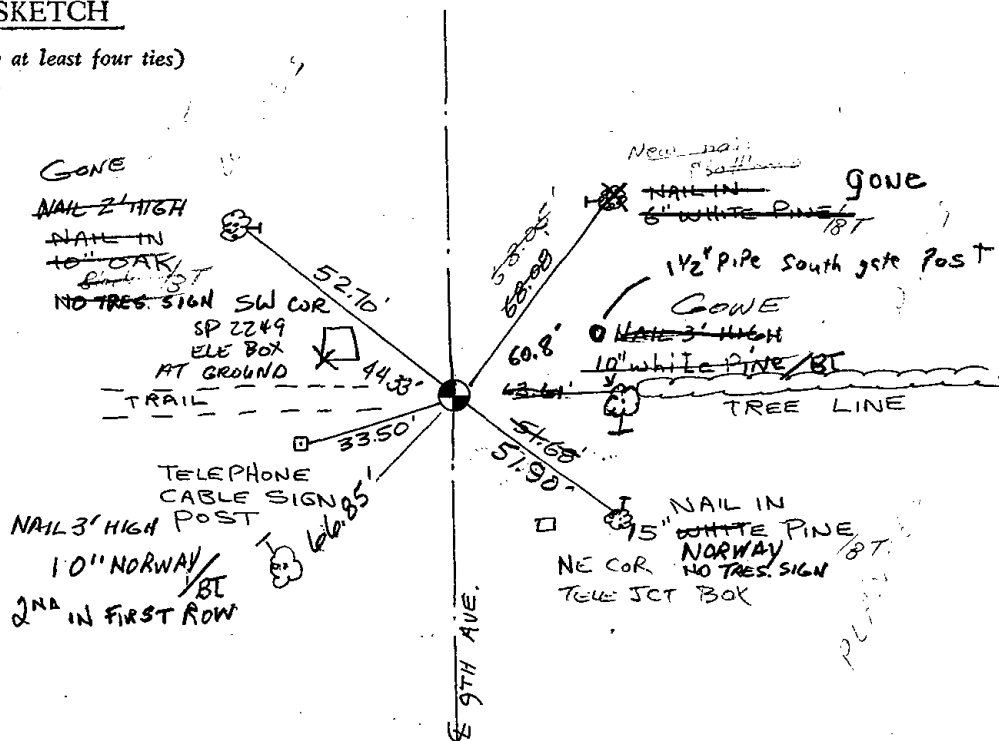 SKETCH
at least four ties)
GONE
NAIL 2' HIGH
NAIL IN
10" OAK
/BT
NO TRES. SIGN
52.70'
SW COR
SP 2249
ELE BOX
AT GROUND
44.33'
TRAIL
33.50'
TELEPHONE
CABLE SIGN
POST
66.85'
NAIL 3' HIGH
10" NORWAY
/BT
2ND IN FIRST ROW
New nail
NAIL IN
6" WHITE PINE /BT
gone
68.08
1 1/2" PIPE South gate POST
GONE
60.8'
NAIL 3' HIGH
10" white PINE/BT
63.61'
TREE LINE
51.68'
51.90'
NAIL IN
15" WHITE PINE
NORWAY /BT.
NO TRES. SIGN
NE COR
TELE JCT BOX
℄ 9TH AVE.